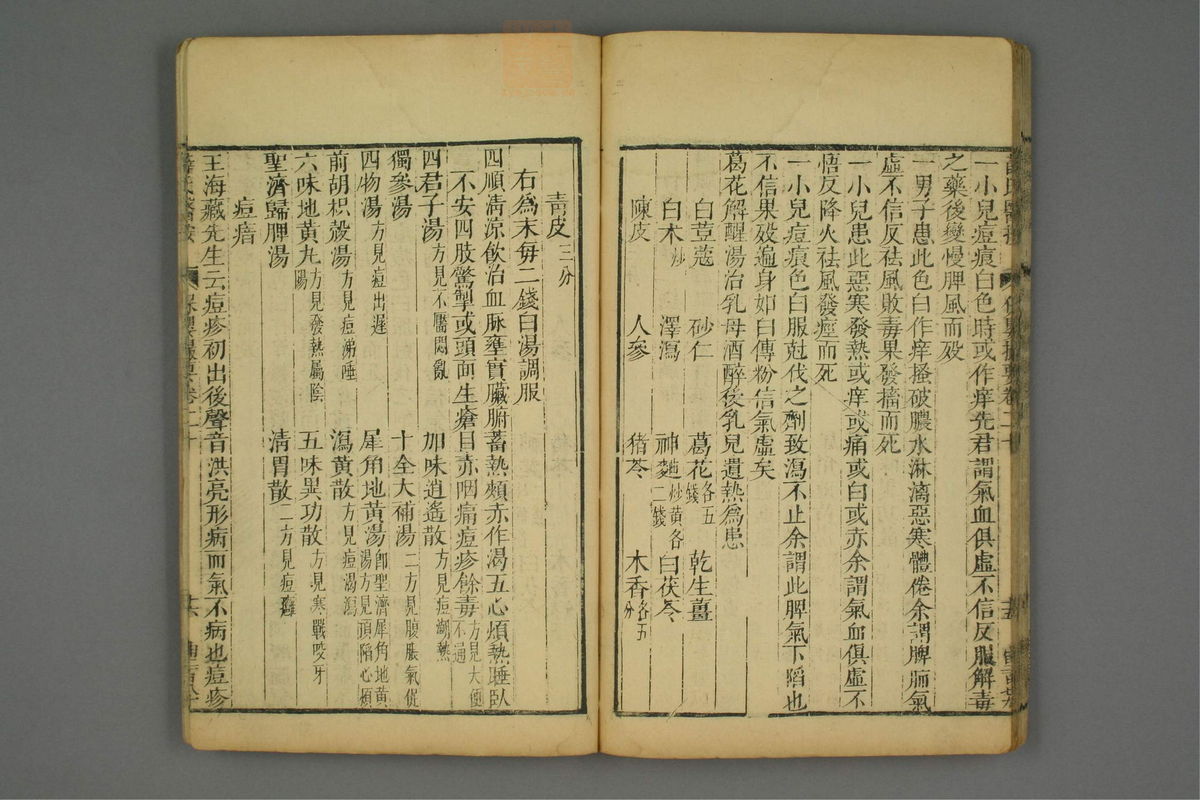 一小兒痘痕白色時或作痒先君謂氣血俱虛不信反服解毒
之藥後變慢脾風而殁
一男子患此色白作痒搔破膿水淋漓惡寒體倦余謂脾肺氣
虛不信反祛風敗毒果發搐而死
一小兒患此惡寒發熱或痒或痛或白或赤余謂氣血俱虛不
悟反降火祛風發痙而死
一小兒痘痕色白服尅伐之劑致瀉不止余謂此脾氣下陷也
不信果殁遍身如白傅粉信氣虛矣
葛花解醒湯治乳母酒醉後乳兒遺熱爲患
白荳蔲 砂仁 葛花各五錢 乾生薑
白朮炒 澤瀉 神麯炒黃各二錢 白茯苓
陳皮 人參 猪苓 木香各五分
青皮三分
右爲末每二錢白湯調服
四順清凉飲治血脉壅實臟腑蓄熱頰赤作渴五心煩熱睡臥
不安四肢驚掣或頭面生瘡目赤咽痛痘疹餘毒方見大便不通
四君子湯方見不靨悶亂 加味逍遙散方見痘後潮熱
獨參湯 十全大補湯二方見腹脹氣促
四物湯方見痘出遲 犀角地黃湯即聖濟犀角地黃湯方見頂陷心煩
前胡枳殼湯方見痘涕唾 瀉黃散方見痘渴瀉
六味地黃丸方見發熱屬陰陽 五味異功散方見寒戰咬牙
聖濟歸脾湯 清胃散二方見痘癰
痘瘖
王海藏先生云痘疹初出後聲音洪亮形病而氣不病也痘疹
薛氏醫按 保嬰撮要卷二十